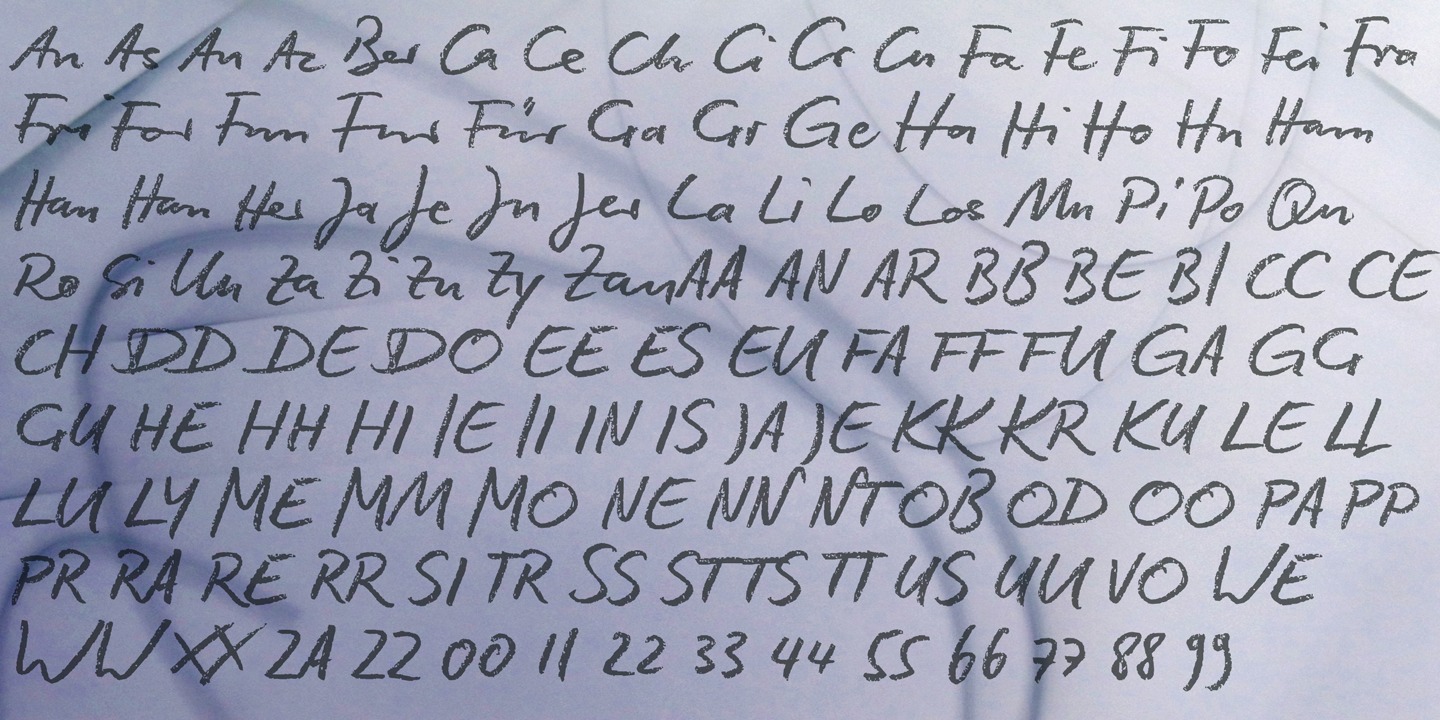 An As Au Az Ber Ca Ce Ch Ci Cr Cu Fa Fe Fi Fo Fei Fra
Fri For Fun Fur Für Ga Gr Ge Ha Hi Ho Hu Ham
Han Har Her Ja Je Ju Jer La Li Lo Los Mu Pi Po Qu
Ro Si Un Za Zi Zu Zy Zau AA AN AR BB BE BI CC CE
CH DD DE DO EE ES EU FA FF FU GA GG
GU HE HH HI IE II IN IS JA JE KK KR KU LE LL
LU LY ME MM MO NE NN NT OB OD OO PA PP
PR RA RE RR SI TR SS ST TS TT US UU VO WE
WW XX ZA ZZ 00 11 22 33 44 55 66 77 88 99